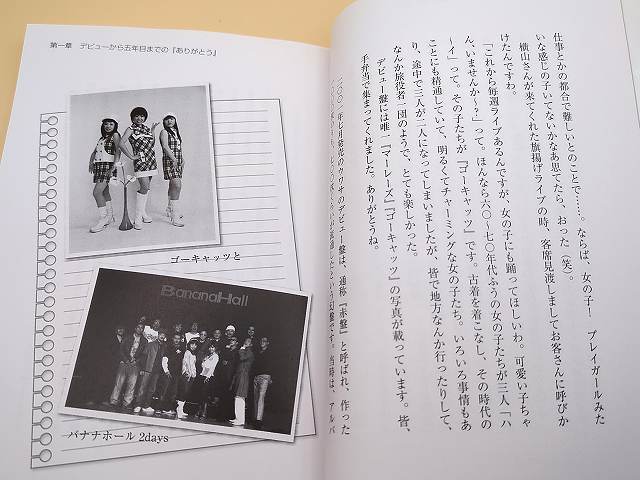 仕事とかの都合で難しいとのことで……。ならば、女の子！　プレイガールみた
いな感じの子いてないかなあ思てたら、おった（笑）。
横山さんが来てくれた旗揚げライブの時、客席見渡しましてお客さんに呼びか
けたんですわ。
「これから毎週ライブあるんですが、女の子にも踊ってほしいわ。可愛い子ちゃ
ん、いませんか～？」って。ほんなら六〇～七〇年代ふうの女の子たちが三人「ハ
ーイ」って。その子たちが『ゴーキャッツ』です。古着を着こなし、その時代の
ことにも精通していて、明るくてチャーミングな女の子たち。いろいろ事情もあ
り、途中で三人が二人になってしまいましたが、皆で地方なんか行ったりして、
なんか旅役者一団のようで、とても楽しかった。
デビュー盤には唯一『マーレーズ』『ゴーキャッツ』の写真が載っています。皆、
手弁当で集まってくれました。ありがとうね。
二〇〇一年七月発売のウワサのデビュー盤は、通称『赤盤』と呼ばれ、作った
という幻盤です。当時は、アルバ
第一章　デビューから五年目までの『ありがとう』
ゴーキャッツと
BananaHall
バナナホール 2days